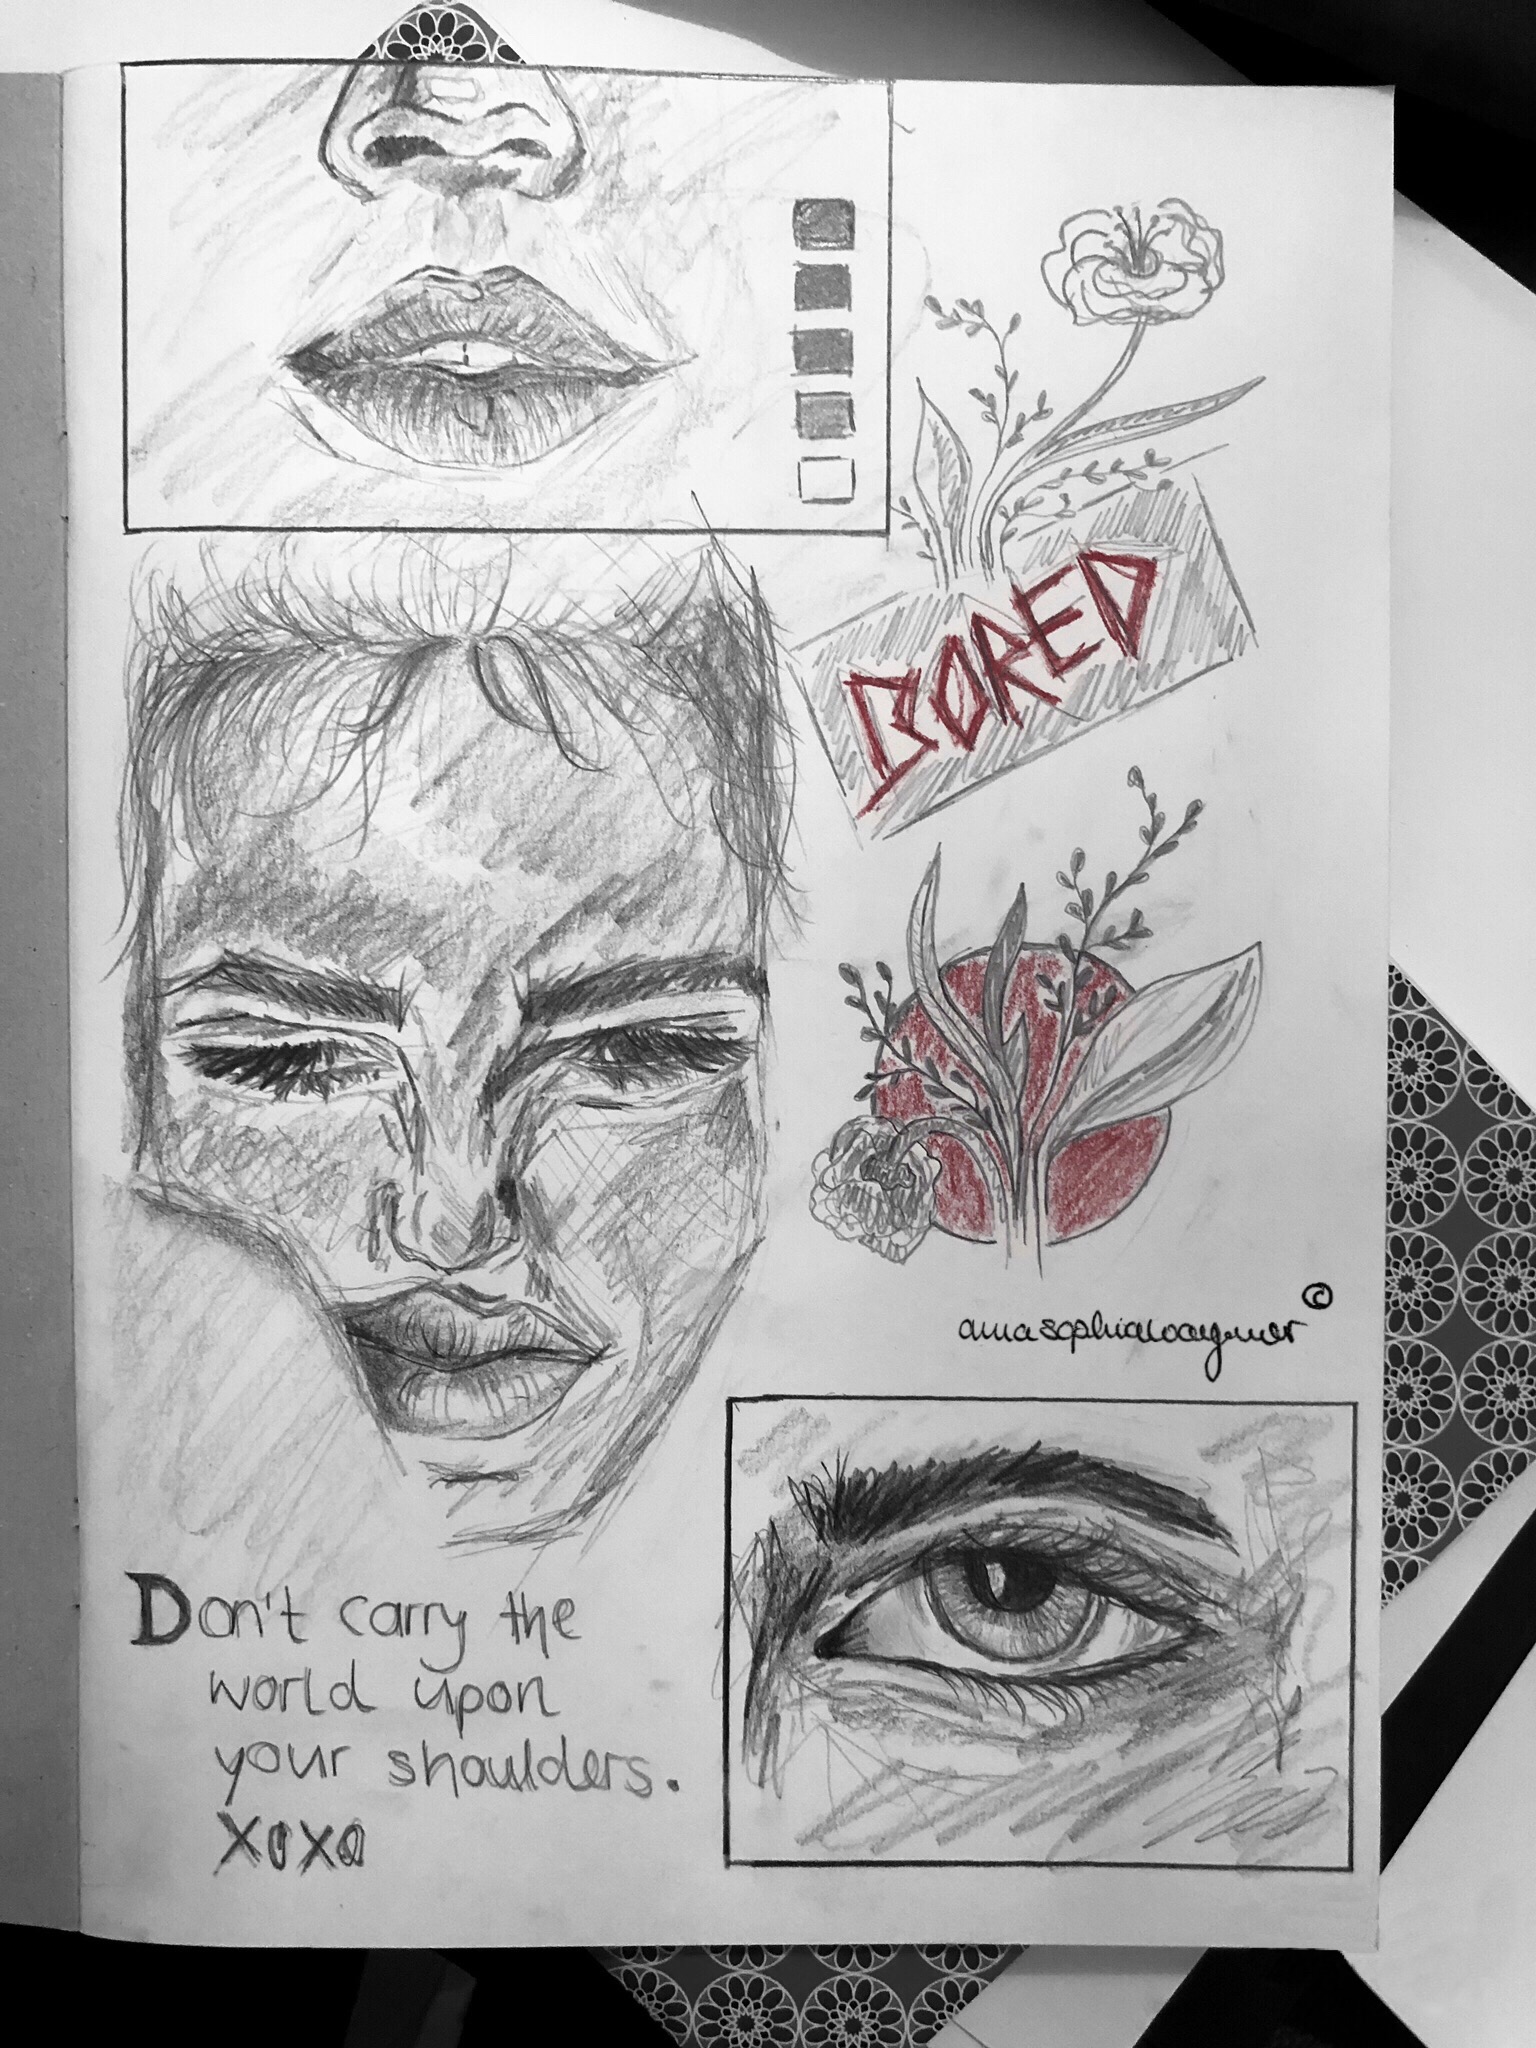 BORED
annasophiawagner ©
Don't carry the
world upon
your shoulders.
XOXO